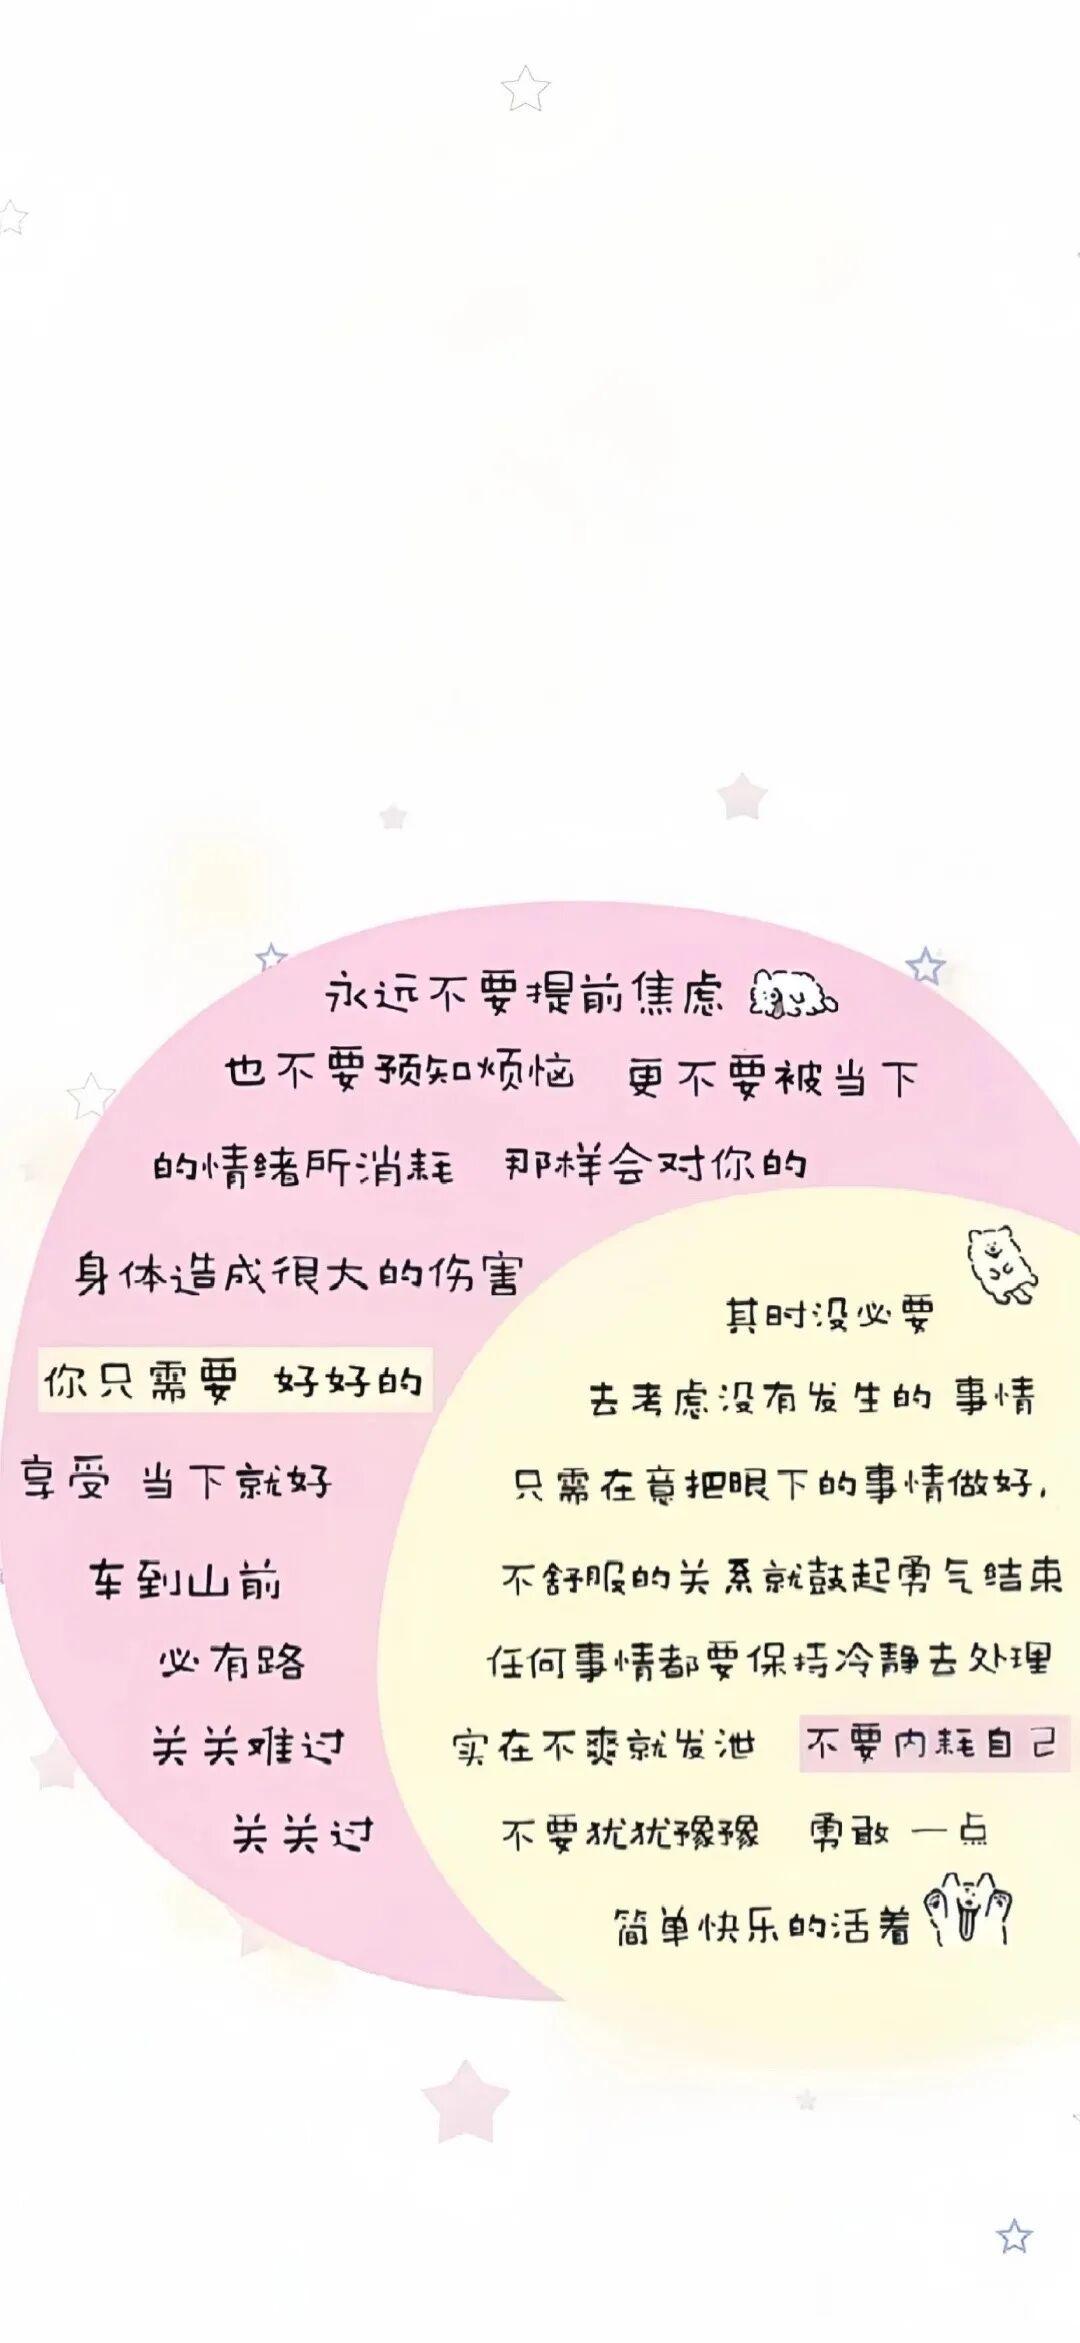 永远不要提前焦虑
也不要预知烦恼 更不要被当下
的情绪所消耗 那样会对你的
身体造成很大的伤害
你只需要 好好的
享受 当下就好
车到山前
必有路
关关难过
关关过
其时没必要
去考虑没有发生的 事情
只需在意把眼下的事情做好,
不舒服的关系就鼓起勇气结束
任何事情都要保持冷静去处理
实在不爽就发泄 不要内耗自己
不要犹犹豫豫 勇敢 一点
简单快乐的活着